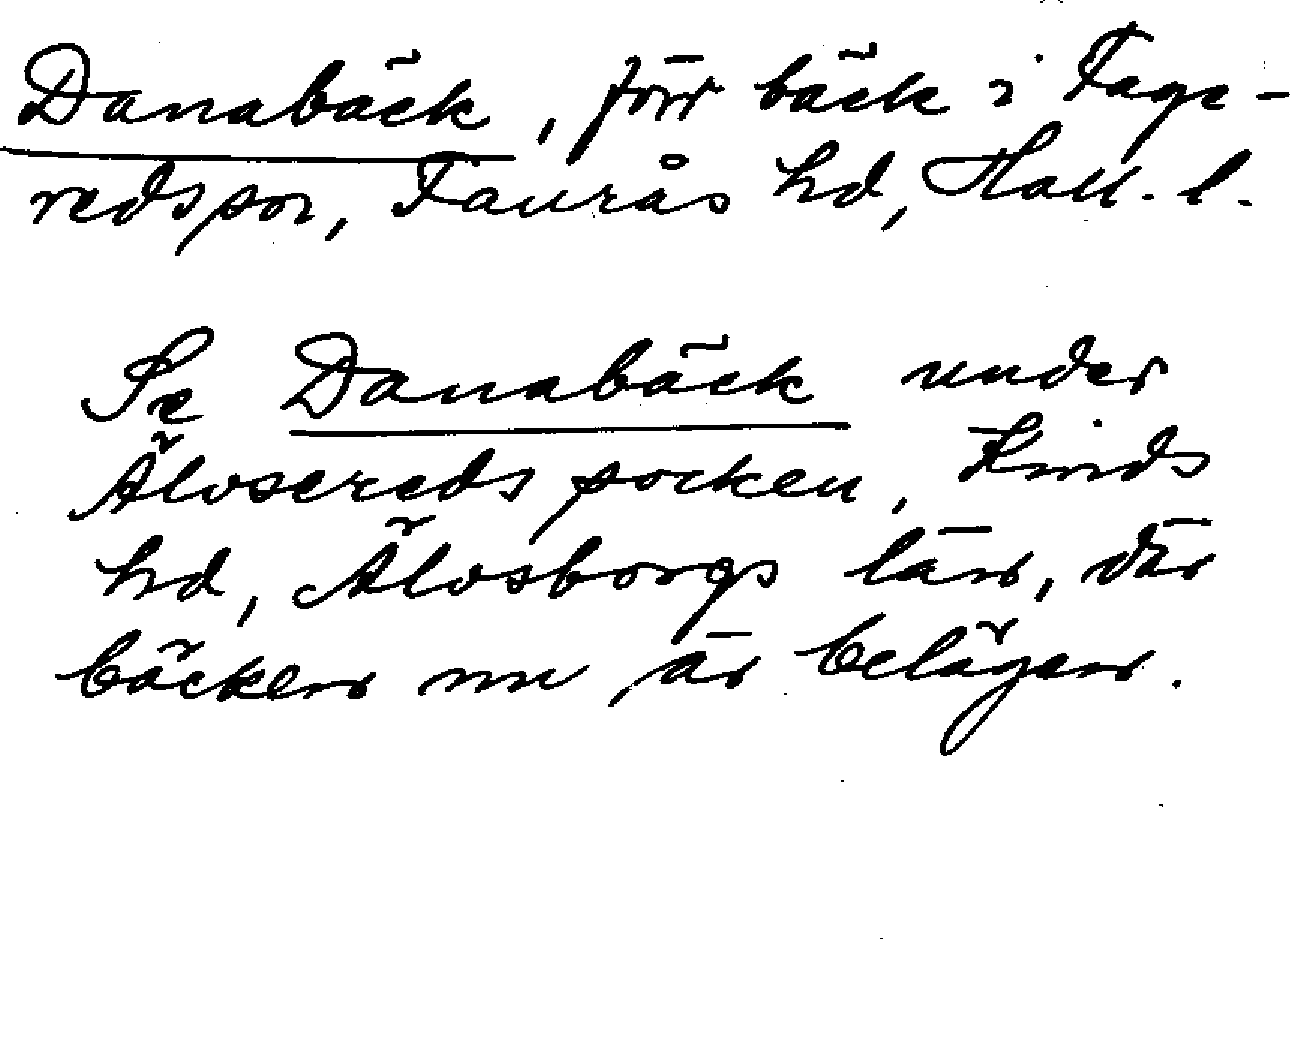 Danabäck, förr bäck i Fage-
reds sn, Faurås hd, Hall. l.
Se Danabäck under
Älvsereds socken, Kinds
hd, Älvsborgs län, där
bäcken nu är belägen.